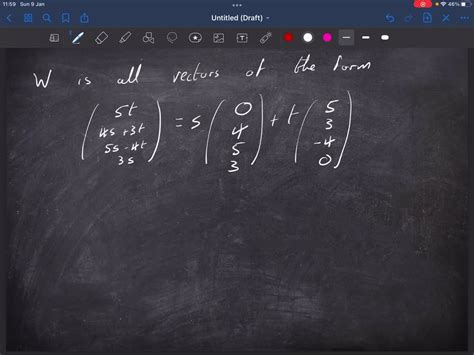 11:59 Sun 9 Jan
46%
Untitled (Draft)
W is all vectors of the form
5t
4s + 3t
5s - 4t
3s
= s
0
4
5
3
+ t
5
3
-4
0